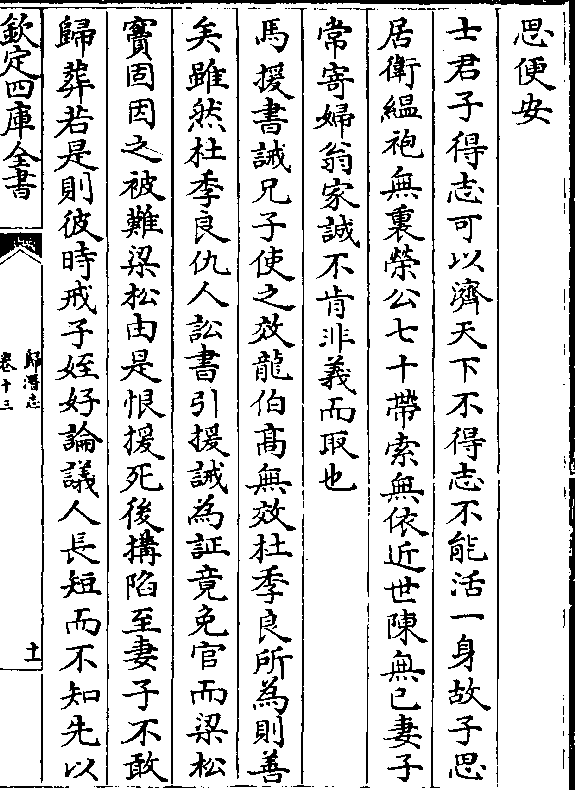 思便安
士君子得志可以濟天下不得志不能活一身故子思
居衛緼袍無裏榮公七十帶索無依近世陳無已妻子
常寄婦翁家誠不肯非義而取也
馬援書誡兄子使之效龍伯髙無效杜季良所為則善
矣雖然杜季良仇人訟書引援誡為証竟免官而梁松
竇固因之被難梁松由是恨援死後搆陷至妻子不敢
歸葬若是則彼時戒子姪好論議人長短而不知先以
欽定四庫全書
歸潛志
卷十三
十一